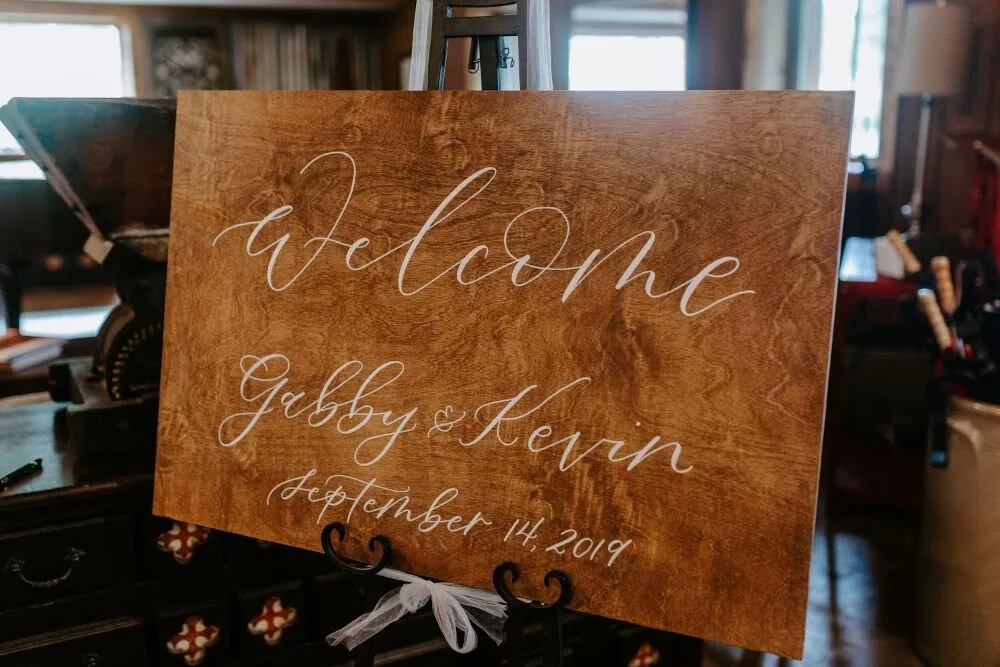 Welcome
Gabby & Kevin
September 14, 2019